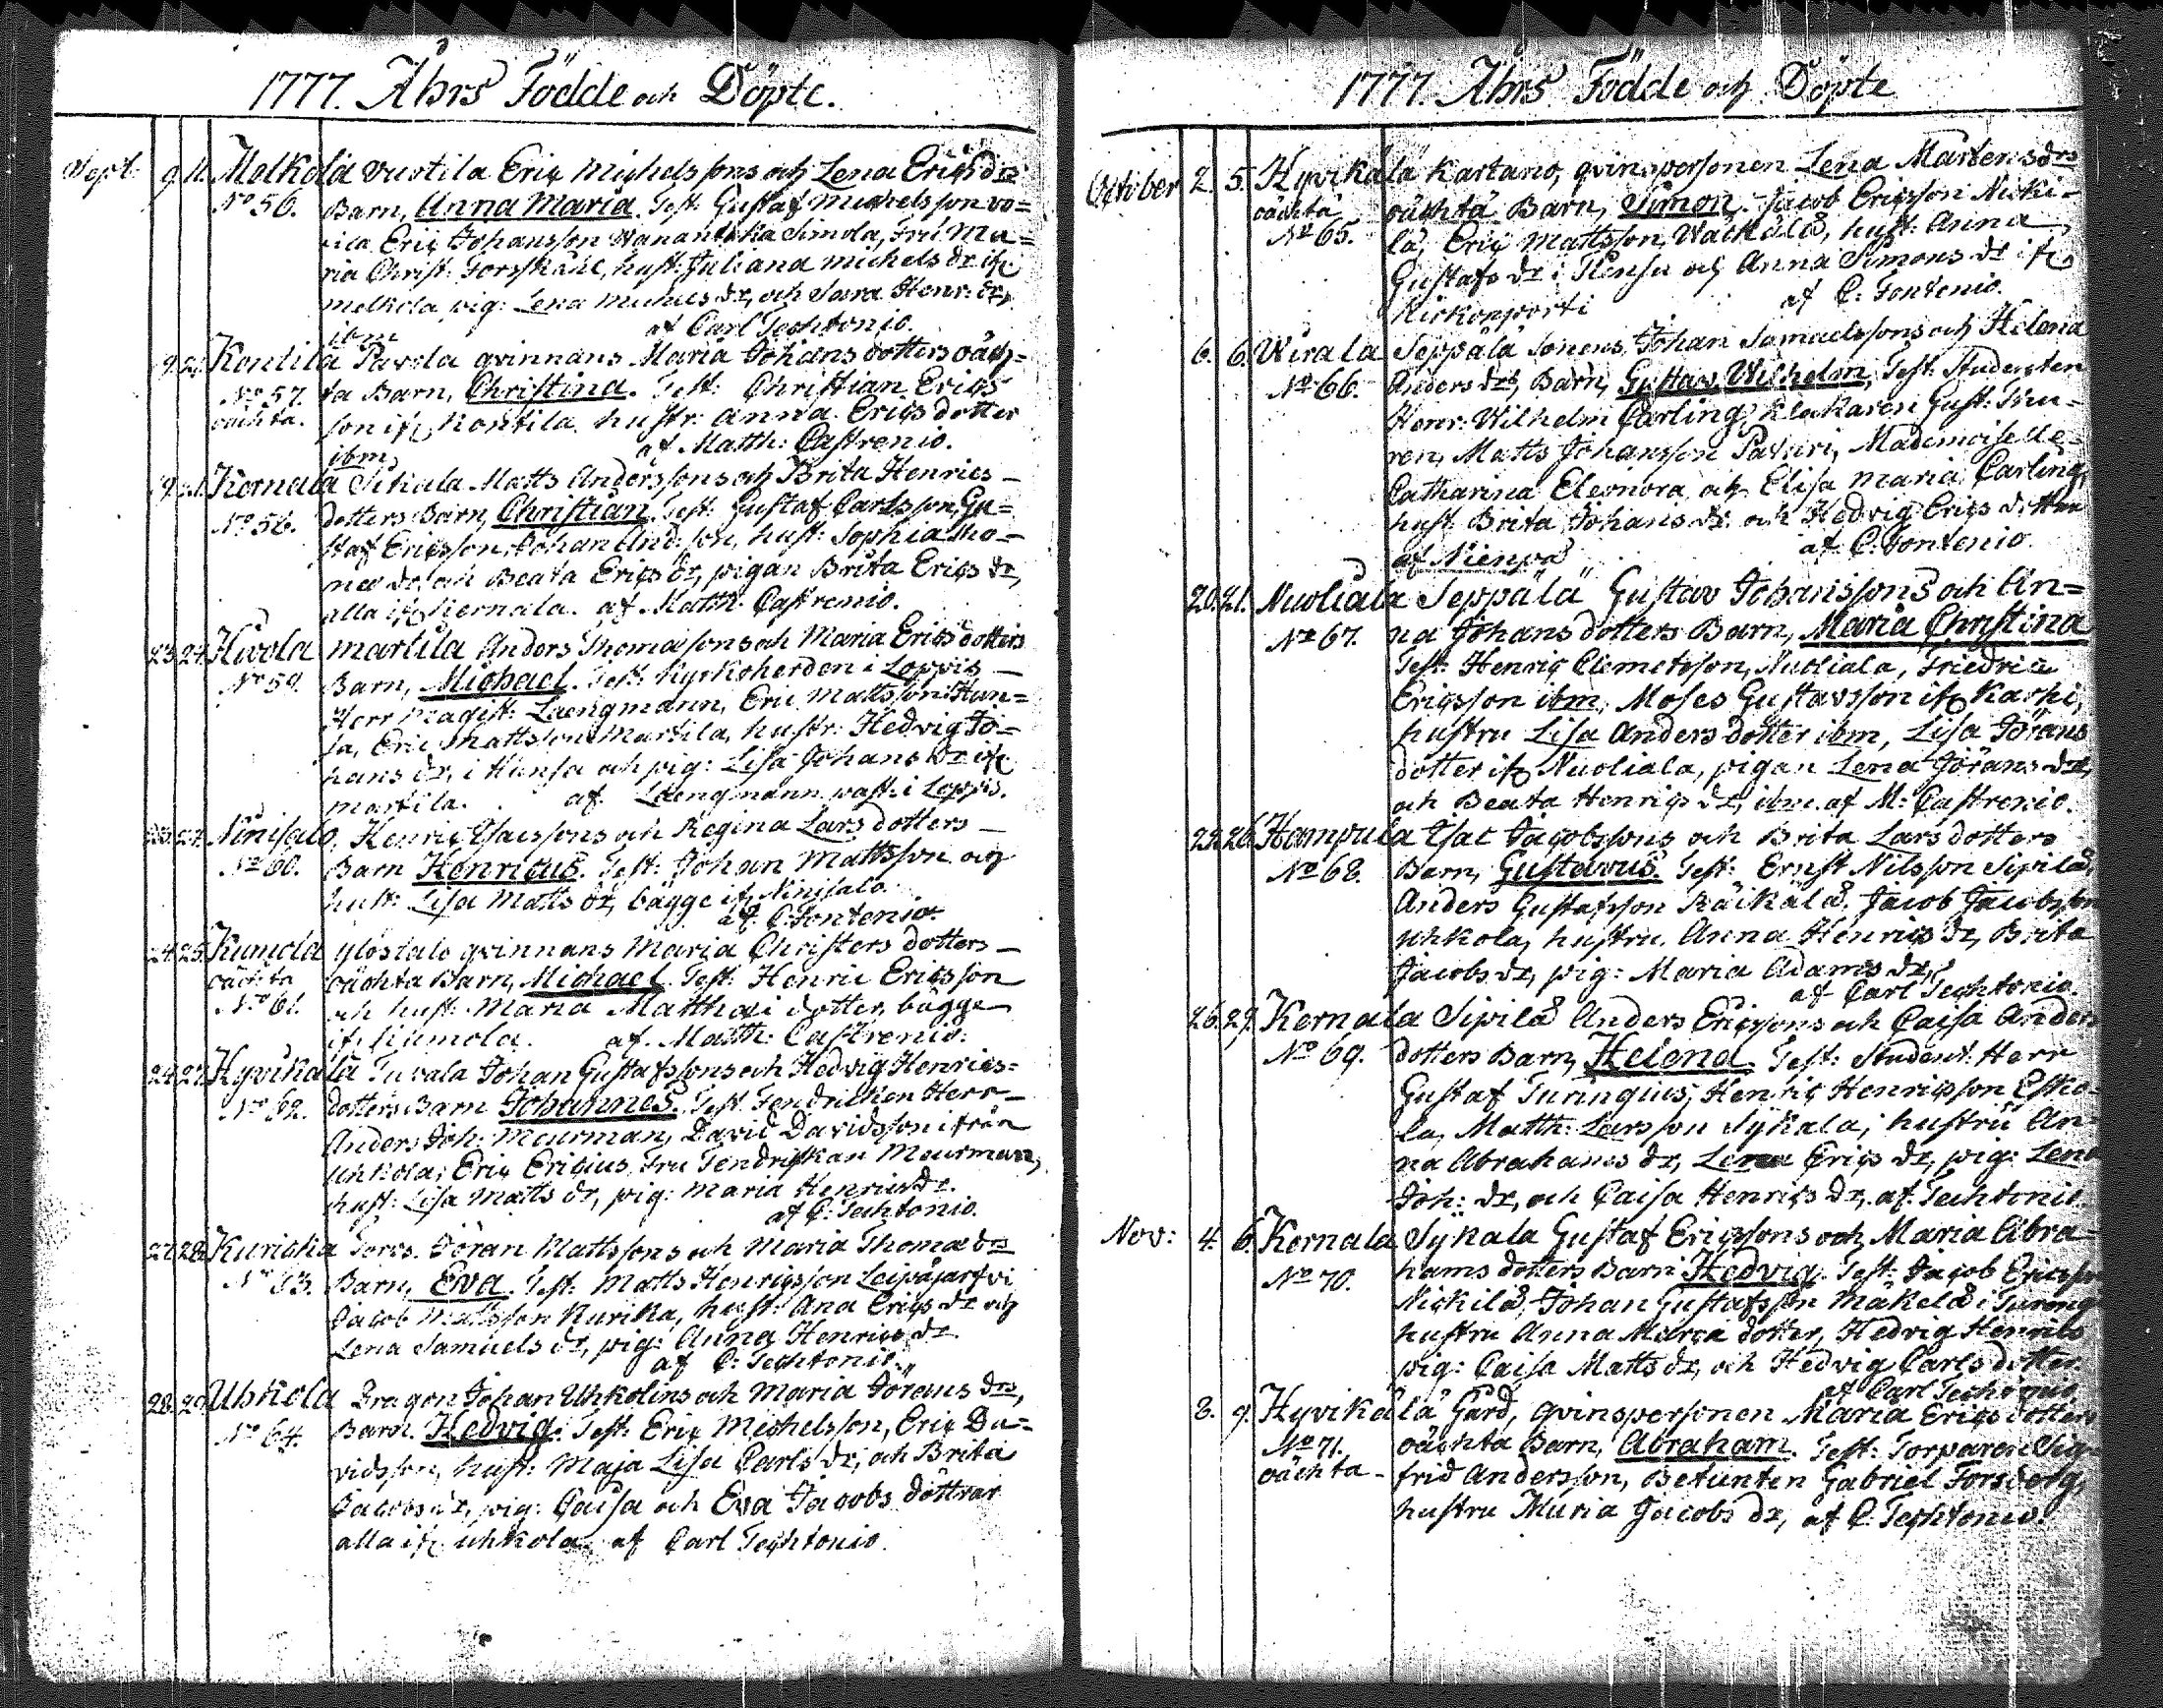 1777. Åhrs Födde och Döpte.
Sept. 9. 11. Melkola Vuotila Eric Michelssons och Lena Erics drs
No 56. Barn, Anna Maria. Test: Gustaf Michelsson
Eric Johansson Simola, Fru Ma=
ria Christ: Forsskåhl, hust: Juliana Michels dr if
Melkola pig: Lena Michels dr, och Sara Henr: dr,
ibm af Carl Techtonio.
Kontila Pavola qvinnans Maria Johans dotters oäch=
No 57. ta Barn, Christina. Test: Christian Erics
oächta. son if Kontila, hustr: Anna Erics dotter
ibm, af Matth: Castrenio.
Kernala Sikala Matts Anderssons och Brita Henrics –
No 58. dotters Barn, Christian. Test: Gustaf Carlsson, Gu=
staf Ericsson, Johan And:son, hust: Sophia Tho=
mæ dr, och Beata Erics dr, pigan Brita Erics dr,
alla if Kiernala. af Matth: Castrenio.
23. 24. Hivola Martila Anders Thomassons och Maria Erics dotters
No 59. Barn, Michael. Test: Kyrkoherden i Loppis –
Herr Magist: Laengmann, Eric Mattsson Hun=
sa, Eric Mattsson Martila, hustr: Hedvig Jo=
hans dr, i Hunsa och pig: Lisa Johans dr if
Martila. af Laengmann past: i Loppis.
27. Ninisalo, Henric Isacssons och Regina Lars dotters –
No 60. Barn Henricus. Test: Johan Mattsson och
hust: Lisa Matts dr, bägge if Ninisalo.
af C. Fontenio.
24. 25. Kumola Ylöstalo qvinnans Maria Christers dotters –
oächta oächta Barn, Michael. Test: Henric Ericsson
No 61. och hust: Maria Matthæi dotter, bägge
if Kumola. af Matth: Castrenio.
24. 27. Hyvikälä Tuvala Johan Gustafssons och Hedvig Henrics=
No 62. dotters Barn Johannes. Test: Fendricken Herr –
Anders Joh: Meurman, David Davidsson ifrån
Uhkola, Eric Ericius, Fru Fendrickan Meurman,
hust: Lisa Matts dr, pig: Maria Henrics dr.
af C: Techtonio.
27. 28. Kurickа Torp. Jöran Mattssons och Maria Thomæ drs
No 63. Barn, Eva. Test: Matts Henricsson Leipäjärfvi
Jacob Mattsson Kurika, hust: Ana Erics dr och
Lena Samuels dr, pig: Anna Henrics dr
af C: Techtonio.
28. 29. Uhkola Dragon Johan Uhkolins och Maria Jörans drs,
No 64. Barn. Hedvig. Test: Eric Michelsson, Eric Da=
vidsson, hust: Maja Lisa Carls dr, och Brita
Jacobs dr, pig: Caisa och Eva Jacobs döttrar
alla if Uhkola, af Carl Techtonio.
1777. Åhrs Födde och Döpte
October 2. 5. Hyvikälä Kartano, qvinspersonen Lena Martens drs
oächta oächta Barn, Simon. Jacob Ericsson Nicki=
No 65. lä, Eric Mattsson, Wackälä, hust: Anna
Gustafs dr i Hensa och Anna Simons dr if
Kirkonporti af C: Fontenio.
6. 6. Wirala Seppälä sonens, Johan Samuelssons och Helena
No 66. Anders drs, Barn, Gustaw Wilhelm, Test: Studenten
Henr: Wilhelm Carling, Klåkaren Gust:
ren, Matts Johansson Paturi, Mademoiselle
Catharina Eleonora och Elisa Maria Carling,
hust: Brita Johans dr och Hedvig Erics dotter
af Nienpä af C: Fontenio.
20. 21. Nuoliala Seppälä Gustav Johanssons och An=
No 67. na Johans dotters Barn, Maria Christina
Test: Henric Clemetsson, Nuoliala, Friedric
Ericsson ibm, Moses Gustavsson if Karhi,
hustru Lisa Anders dotter ibm, Lisa Jörans
dotter if Nuoliala, pigan Lena Jörans dr,
och Beata Henrics dr, ibm. af M: Castrenio.
26. Hampula Isac Jacobssons och Brita Lars dotters
No 68. Barn, Gustavus. Test: Ernst Nilsson Sipilä,
Anders Gustafsson Räikälä, Jacob Jacobsson
Uhkola, hustru Anna Henrics dr, Brita
Jacobs dr, pig: Maria Adams dr,
af Carl Techtonio.
26. 29. Kernala Sipilä Anders Ericssons och Caisa Anders
No 69. dotters Barn, Helena. Test: Student: Herr
Gustaf Turinqius, Henric Henricsson Esko=
la, Matth: Larsson Sykala, hustru An=
na Abrahams dr, Lena Erics dr, pig: Lena
Joh: dr, och Caisa Henrics dr, af Techtonio
Nov: 4. 6. Kernala Sykala Gustaf Ericssons och Maria Abra=
No 70. hams dotters Barn Hedvig. Test: Jacob Ericsson
Nickilä, Johan Gustafsson Mäkelä i Tureng
hustru Anna Maria dotter, Hedvig Henrics
pig: Caisa Matts dr, och Hedvig Carls dotter
af Carl Techtonio
8. 9. Hyvikälä Gård, qvinspersonen Maria Erics dotters
No 71. oächta Barn, Abraham. Test: Torparen Sig=
oächta – frid Andersson, Betienten Gabriel Forsberg,
hustru Maria Jacobs dr, af C: Techtonio.